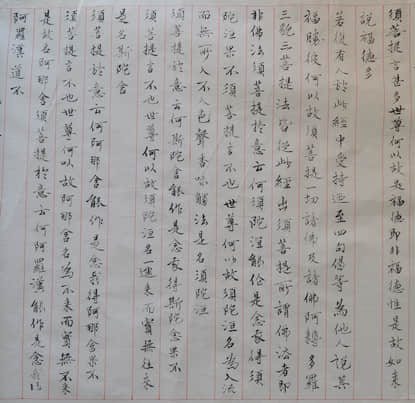 須菩提言甚多世尊何以故是福德即非福德性是故如來
說福德多
若復有人於此經中受持乃至四句偈等為他人說其
福勝彼何以故須菩提一切諸佛及諸佛阿耨多羅
三藐三菩提法皆從此經出須菩提所謂佛法者即
非佛法須菩提於意云何須陀洹能作是念我得須
陀洹果不須菩提言不也世尊何以故須陀洹名為入流
而無所入不入色聲香味觸法是名須陀洹
須菩提於意云何斯陀含能作是念我得斯陀含果不
須菩提言不也世尊何以故斯陀含名一往來而實無往來
是名斯陀含
須菩提於意云何阿那含能作是念我得阿那含果不
須菩提言不也世尊何以故阿那含名為不來而實無不來
是故名阿那含須菩提於意云何阿羅漢能作是念我得
阿羅漢道不